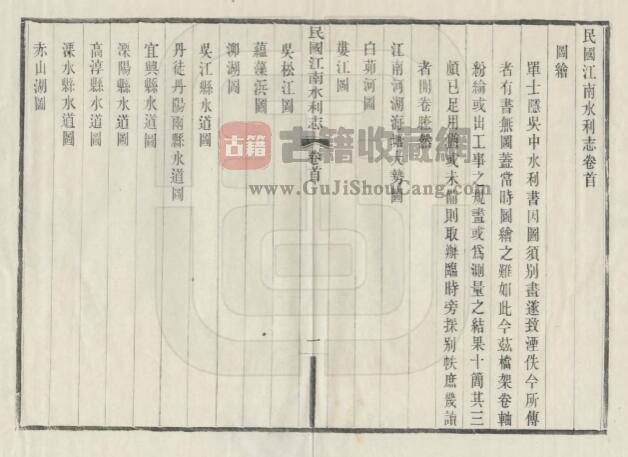 民國江南水利志卷首
圖繪
單士隱吳中水利書因圖須別畫遂致湮佚今所傳
者有書無圖蓋當時圖繪之難如此今茲檔架卷軸
粉綸或出工事之規畫或為測量之結果十簡其三
頗已足用舊或未備則取辦臨時旁採別帙庶幾讀
者開卷瞭然
江南河湖海大勢圖
白茆河圖
婁江圖
民國江南水利志 卷首 一
吳松江圖
蘊藻浜圖
澱湖圖
吳江縣水道圖
丹徒丹陽兩縣水道圖
宜興縣水道圖
溧陽縣水道圖
高淳縣水道圖
溧水縣水道圖
赤山湖圖
古籍 古籍收藏網
www.GuJiShouCang.com